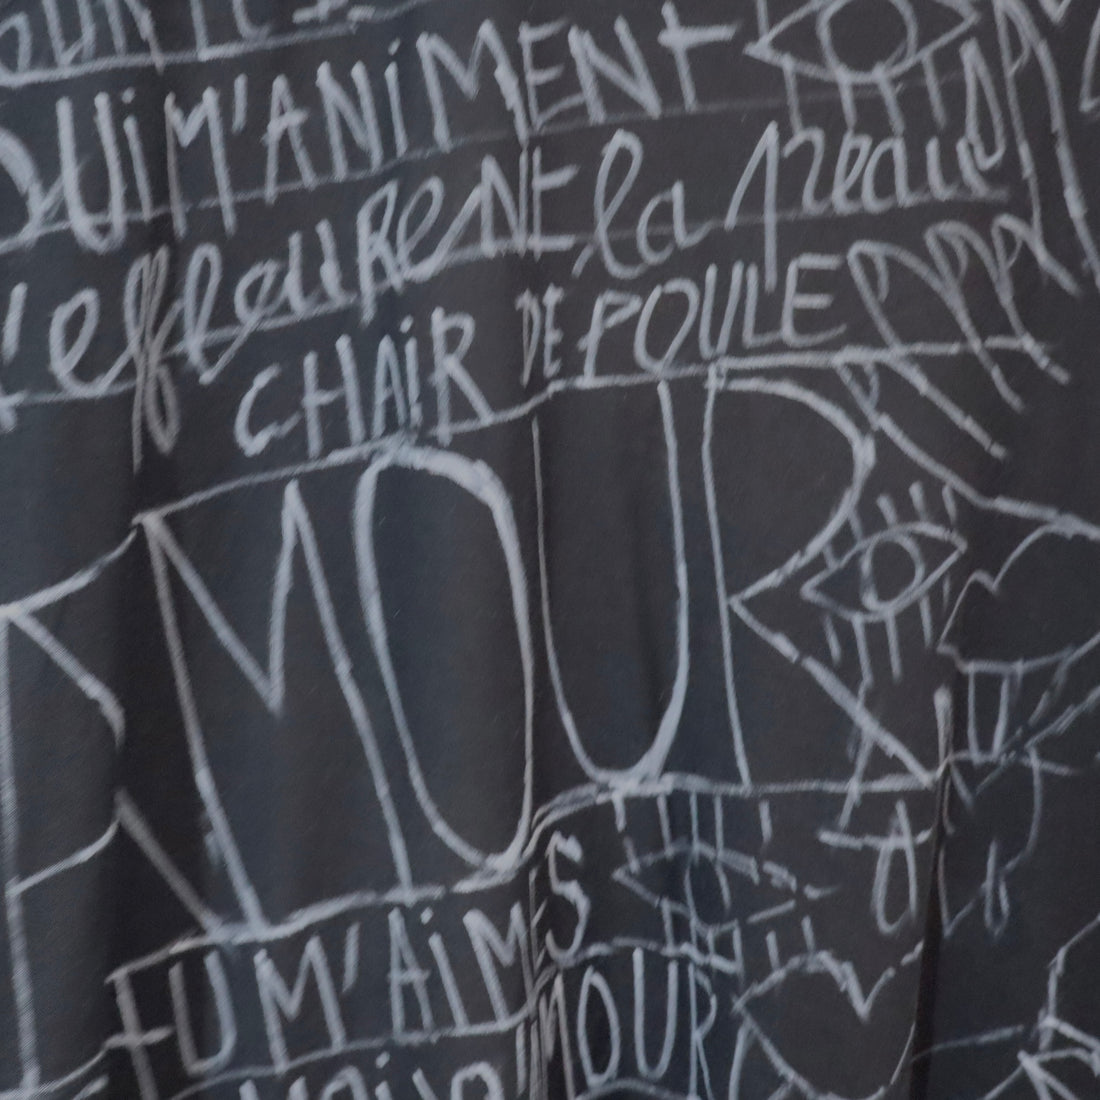 QUi M'ANiMENT
l'effleuReNE la peau
CHAiR DE POULE
AMOUR
TU M'AiMES
AMOUR